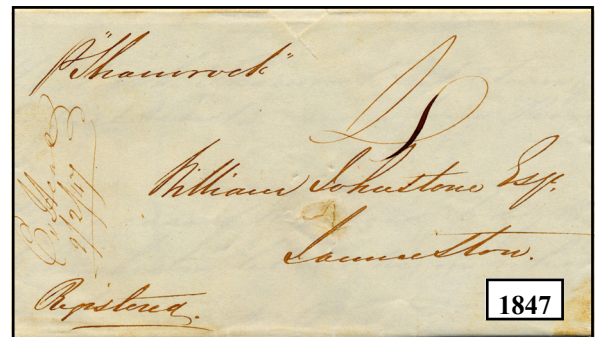 p "Shamrock"
William Johnstone Esqr.
Launceston.
9/2/47
Registered.
1847